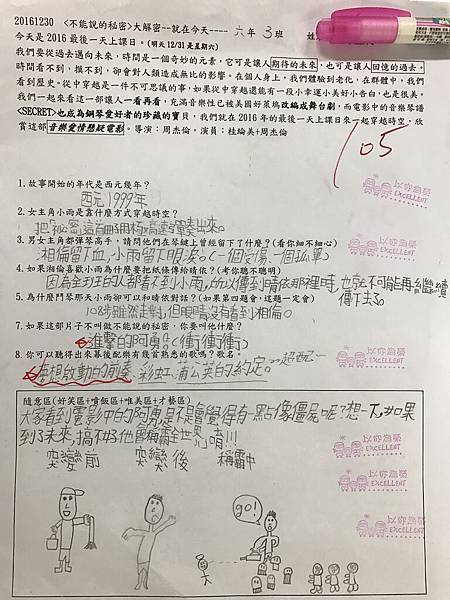 20161230 <不能說的秘密>大解密--就在今天---- 六年 3 班 姓
今天是 2016 最後一天上課日。(明天 12/31 是星期六)
我們要從過去邁向未來，時間是一個奇妙的元素，它可是讓人期待的未來，也可是讓人回憶的過去。
時間看不到，摸不到，卻會對人類造成無比的影響。在個人身上，我們體驗到老化，在群體中，我們
看到歷史。從中穿越是一件不可思議的事，如果從中穿越還能有一段小幸運小美好小告白，也是很美。
我們一起來看這一部讓人一看再看，充滿音樂性已被美國好萊塢改編成舞台劇，而電影中的音樂琴譜
<SECRET>也成為鋼琴愛好者的珍藏的寶貝，我們就在 2016 年的最後一天上課日來一起穿越時空，欣
賞這部音樂愛情懸疑電影。導演：周杰倫。演員：桂綸美+周杰倫
105
1.故事開始的年代是西元幾年？
西元1999年
2.女主角小雨是靠什麼方式穿越時空？
把「祕密」這首
3.男女主角都彈琴高手，請問他們在琴鍵上曾經留下了什麼？(看你細不細心)
湘倫留下血，小雨留下眼淚。(一個受傷、一個孤單)
4.如果湘倫喜歡小雨為什麼要把紙條傳給晴依？(考你聰不聰明)
因為全班的人都看不到小雨，所以傳到晴依那裡時，也就不可能再繼續
傳下去了。
5.為什麼鬥琴那天小雨卻可以和晴依對話？(如果第四題會，這題一定會)
108步雖然走對，但眼睛沒有看到相倫。
7.如果這部片子不叫做不能說的秘密，你要叫他什麼？
進擊的阿勇。(衝衝衝)
8.你可以聽得出來幕後配樂有幾首熟悉的歌嗎？歌名：
夢想啟動的阿 彩虹、蒲公英的約定。
隨意區(好笑區+噴飯區+唯美區+才藝區)
大家看到電影中的阿勇是不是會覺得有一點像僵屍呢？想一下，如果
到了未來，搞不好他會稱霸全世界唷!!!
突變前 突變後 稱霸中
go!
以你為榮
EXCELLENT
以你為榮
EXCELLENT
以你為榮
EXCELLENT
以你為榮
EXCELLENT
以你為榮
EXCELLENT
以你為榮
EXCELLENT